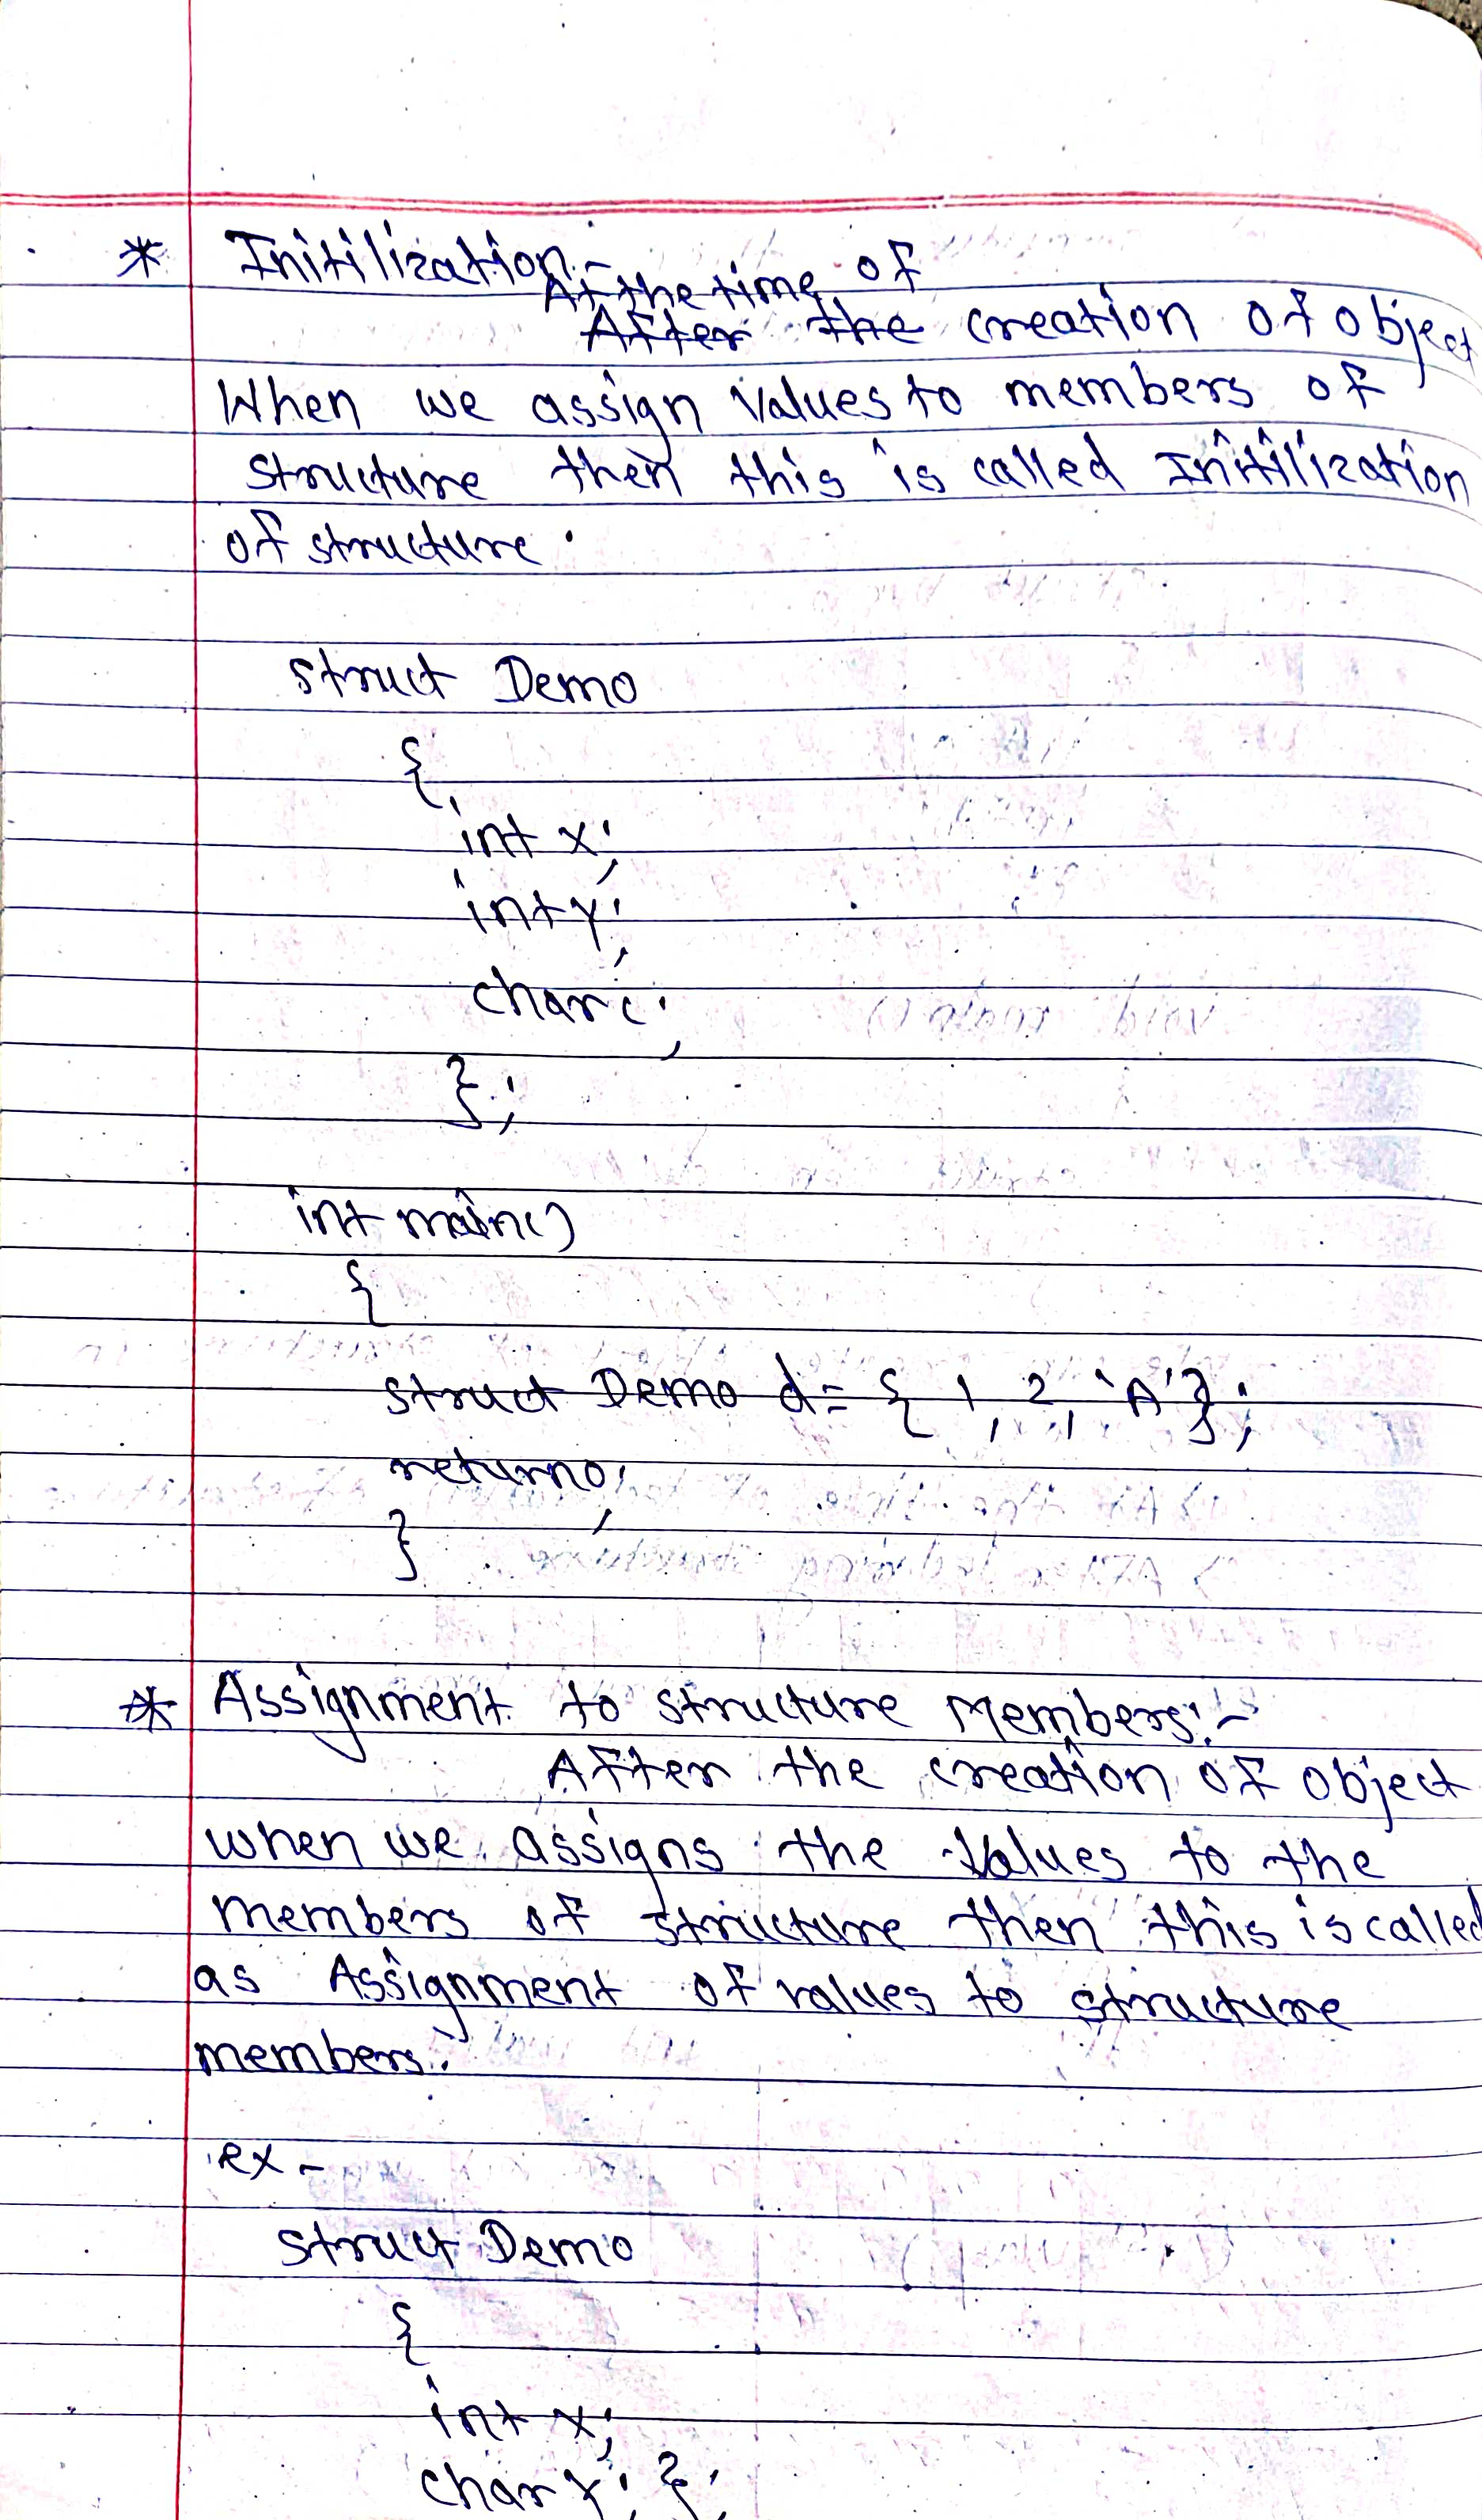 * Initilization:-
At the time of
After the creation of object
When we assign values to members of
structure then this is called Initilization
of structure.
struct Demo
{
int x;
int y;
char c;
};
int main()
{
struct Demo d = { 1, 2, 'A'};
return 0;
}
* Assignment to structure Members:-
After the creation of object
when we assigns the values to the
members of structure then this is called
as Assignment of values to structure
members.
ex-
struct Demo
{
int x;
char y; };